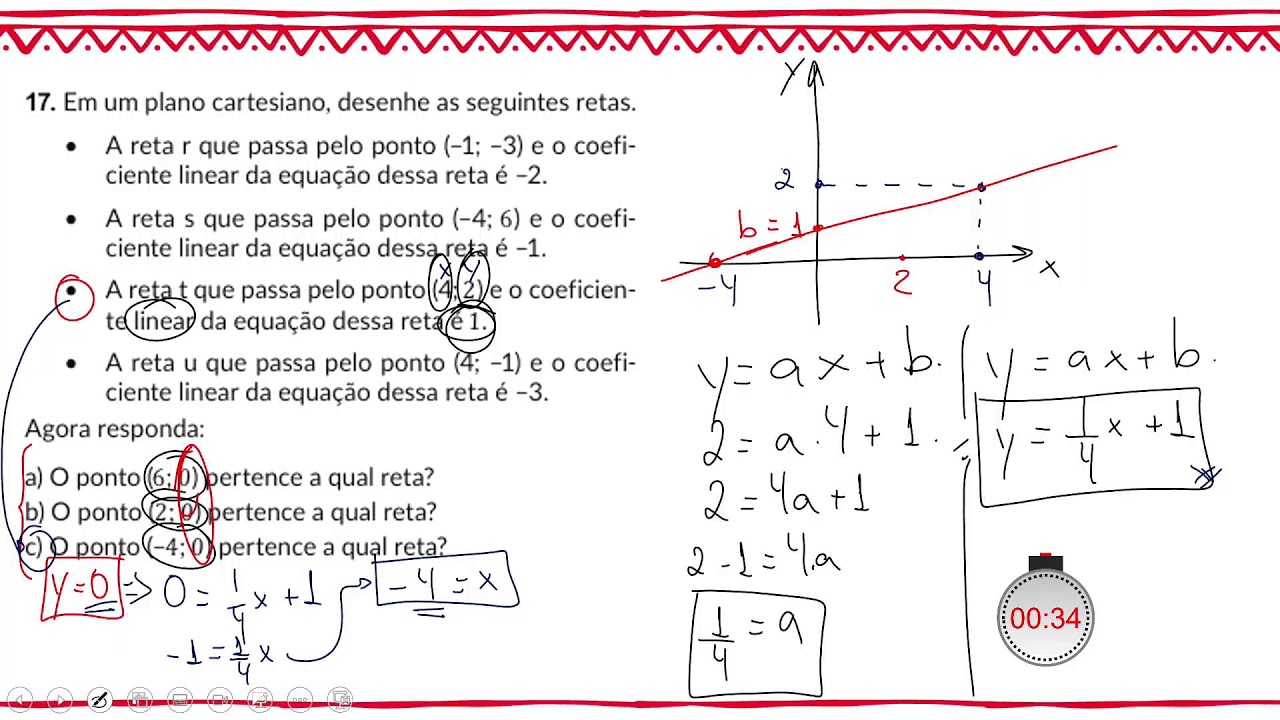 17. Em um plano cartesiano, desenhe as seguintes retas.
• A reta r que passa pelo ponto (–1; –3) e o coefi-
ciente linear da equação dessa reta é –2.
• A reta s que passa pelo ponto (–4; 6) e o coefi-
ciente linear da equação dessa reta é –1.
x y
• A reta t que passa pelo ponto (4; 2) e o coeficien-
te linear da equação dessa reta é 1.
• A reta u que passa pelo ponto (4; –1) e o coefi-
ciente linear da equação dessa reta é –3.
Agora responda:
a) O ponto (6; 0) pertence a qual reta?
b) O ponto (2; 0) pertence a qual reta?
c) O ponto (–4; 0) pertence a qual reta?
y=0 => 0 = 1/4 x + 1
-1 = 1/4 x
-4 = x
y
2
b = 1
-4 2 4 x
y = ax + b.
2 = a.4 + 1.
2 = 4a + 1
2 - 1 = 4.a
1/4 = a
y = ax + b.
y = 1/4 x + 1
00:34